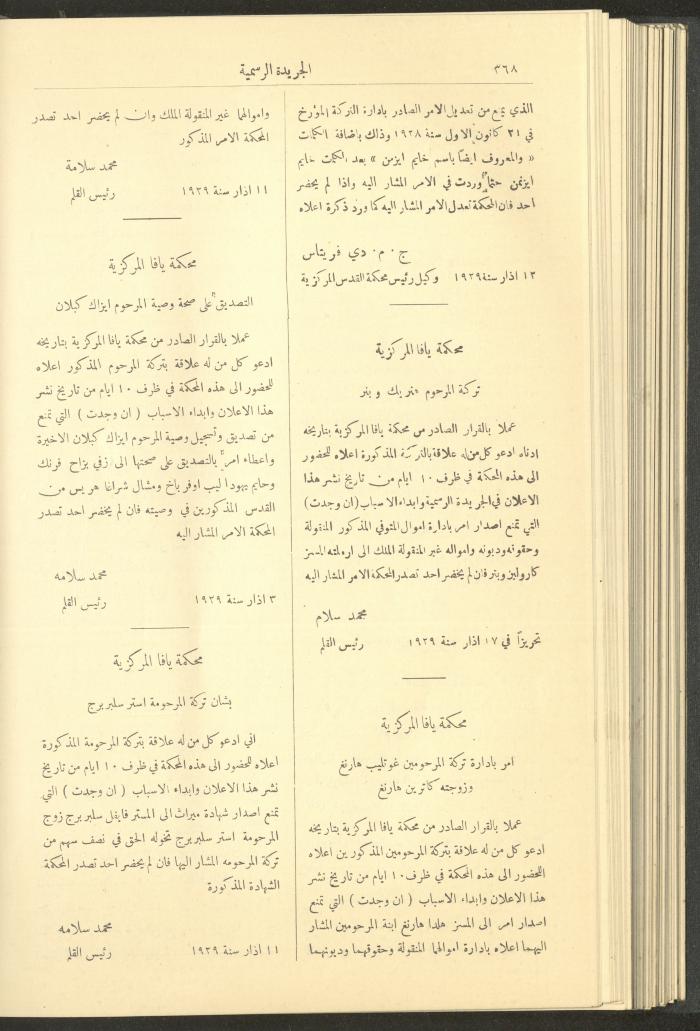 ٣٦٨
الجريدة الرسمية
الذي يمنع من تعديل الامر الصادر بادارة التركة المؤرخ
في ٣١ كانون الاول سنة ١٩٢٨ وذلك باضافة الكلمات
« والمعروف ايضاً باسم خايم ايزمن » بعد الكلمات خايم
ايزنمن حيثما وردت في الامر المشار اليه واذا لم يحضر
احد فان المحكمة تعدل الامر المشار اليه كما ورد ذكرة اعلاه
ج ٠ م ٠ دي فريتاس
١٣ اذار سنة ١٩٢٩ وكيل رئيس محكمة القدس المركزية
محكمة يافا المركزية
تركة المرحوم هنريك وبنر
عملا بالقرار الصادر من محكمة يافا المركزية بتاريخه
ادناه ادعو كل من له علاقة بالتركة المذكورة اعلاه للحضور
الى هذه المحكمة في ظرف ١٠ ايام من تاريخ نشر هذا
الاعلان في الجريدة الرسمية وابداء الاسباب (ان وجدت)
التي تمنع اصدار امر بادارة اموال المتوفي المذكور المنقولة
وحقوقه وديونه وامواله غير المنقولة الملك الى ارملته المسز
كارولين وبنر فان لم يحضر احد تصدر المحكمة الامر المشار اليه
محمد سلام
تحريراً في ١٧ اذار سنة ١٩٢٩ رئيس القلم
محكمة يافا المركزية
امر بادارة تركة المرحومين غوتليب هارنغ
وزوجته كاترين هارنغ
عملا بالقرار الصادر من محكمة يافا المركزية بتاريخه
ادعو كل من له علاقة بتركة المرحومين المذكورين اعلاه
للحضور الى هذه المحكمة في ظرف ١٠ ايام من تاريخ نشر
هذا الاعلان وابداء الاسباب ( ان وجدت ) التي تمنع
اصدار امر الى المسز هلدا هارنغ ابنة المرحومين المشار
اليهما اعلاه بادارة اموالهما المنقولة وحقوقهما وديونهما
واموالهما غير المنقولة الملك وان لم يحضر احد تصدر
المحكمة الامر المذكور
محمد سلامة
١١ اذار سنة ١٩٢٩ رئيس القلم
محكمة يافا المركزية
التصديق على صحة وصية المرحوم ايزاك كبلان
عملا بالقرار الصادر من محكمة يافا المركزية بتاريخه
ادعو كل من له علاقة بتركة المرحوم المذكور اعلاه
للحضور الى هذه المحكمة في ظرف ١٠ ايام من تاريخ نشر
هذا الاعلان وابداء الاسباب ( ان وجدت ) التي تمنع
من تصديق وتسجيل وصية المرحوم ايزاك كبلان الاخيرة
واعطاء امر بالتصديق على صحتها الى زفي بزاح فرنك
وحايم يهودا ليب اوفرباخ ومشال شراغا هريس من
القدس المذكورين في وصيته فان لم يحضر احد تصدر
المحكمة الامر المشار اليه
محمد سلامه
٣ اذار سنة ١٩٢٩ رئيس القلم
محكمة يافا المركزية
بشان تركة المرحومة استر سلبربرج
اني ادعو كل من له علاقة بتركة المرحومة المذكورة
اعلاه للحضور الى هذه المحكمة في ظرف ١٠ ايام من تاريخ
نشر هذا الاعلان وابداء الاسباب ( ان وجدت ) التي
تمنع اصدار شهادة ميراث الى المستر فايفل سلبربرج زوج
المرحومة استر سلبربرج تخوله الحق في نصف سهم من
تركة المرحومه المشار اليها فان لم يحضر احد تصدر المحكمة
الشهادة المذكورة
محمد سلامه
١١ اذار سنة ١٩٢٩ رئيس القلم